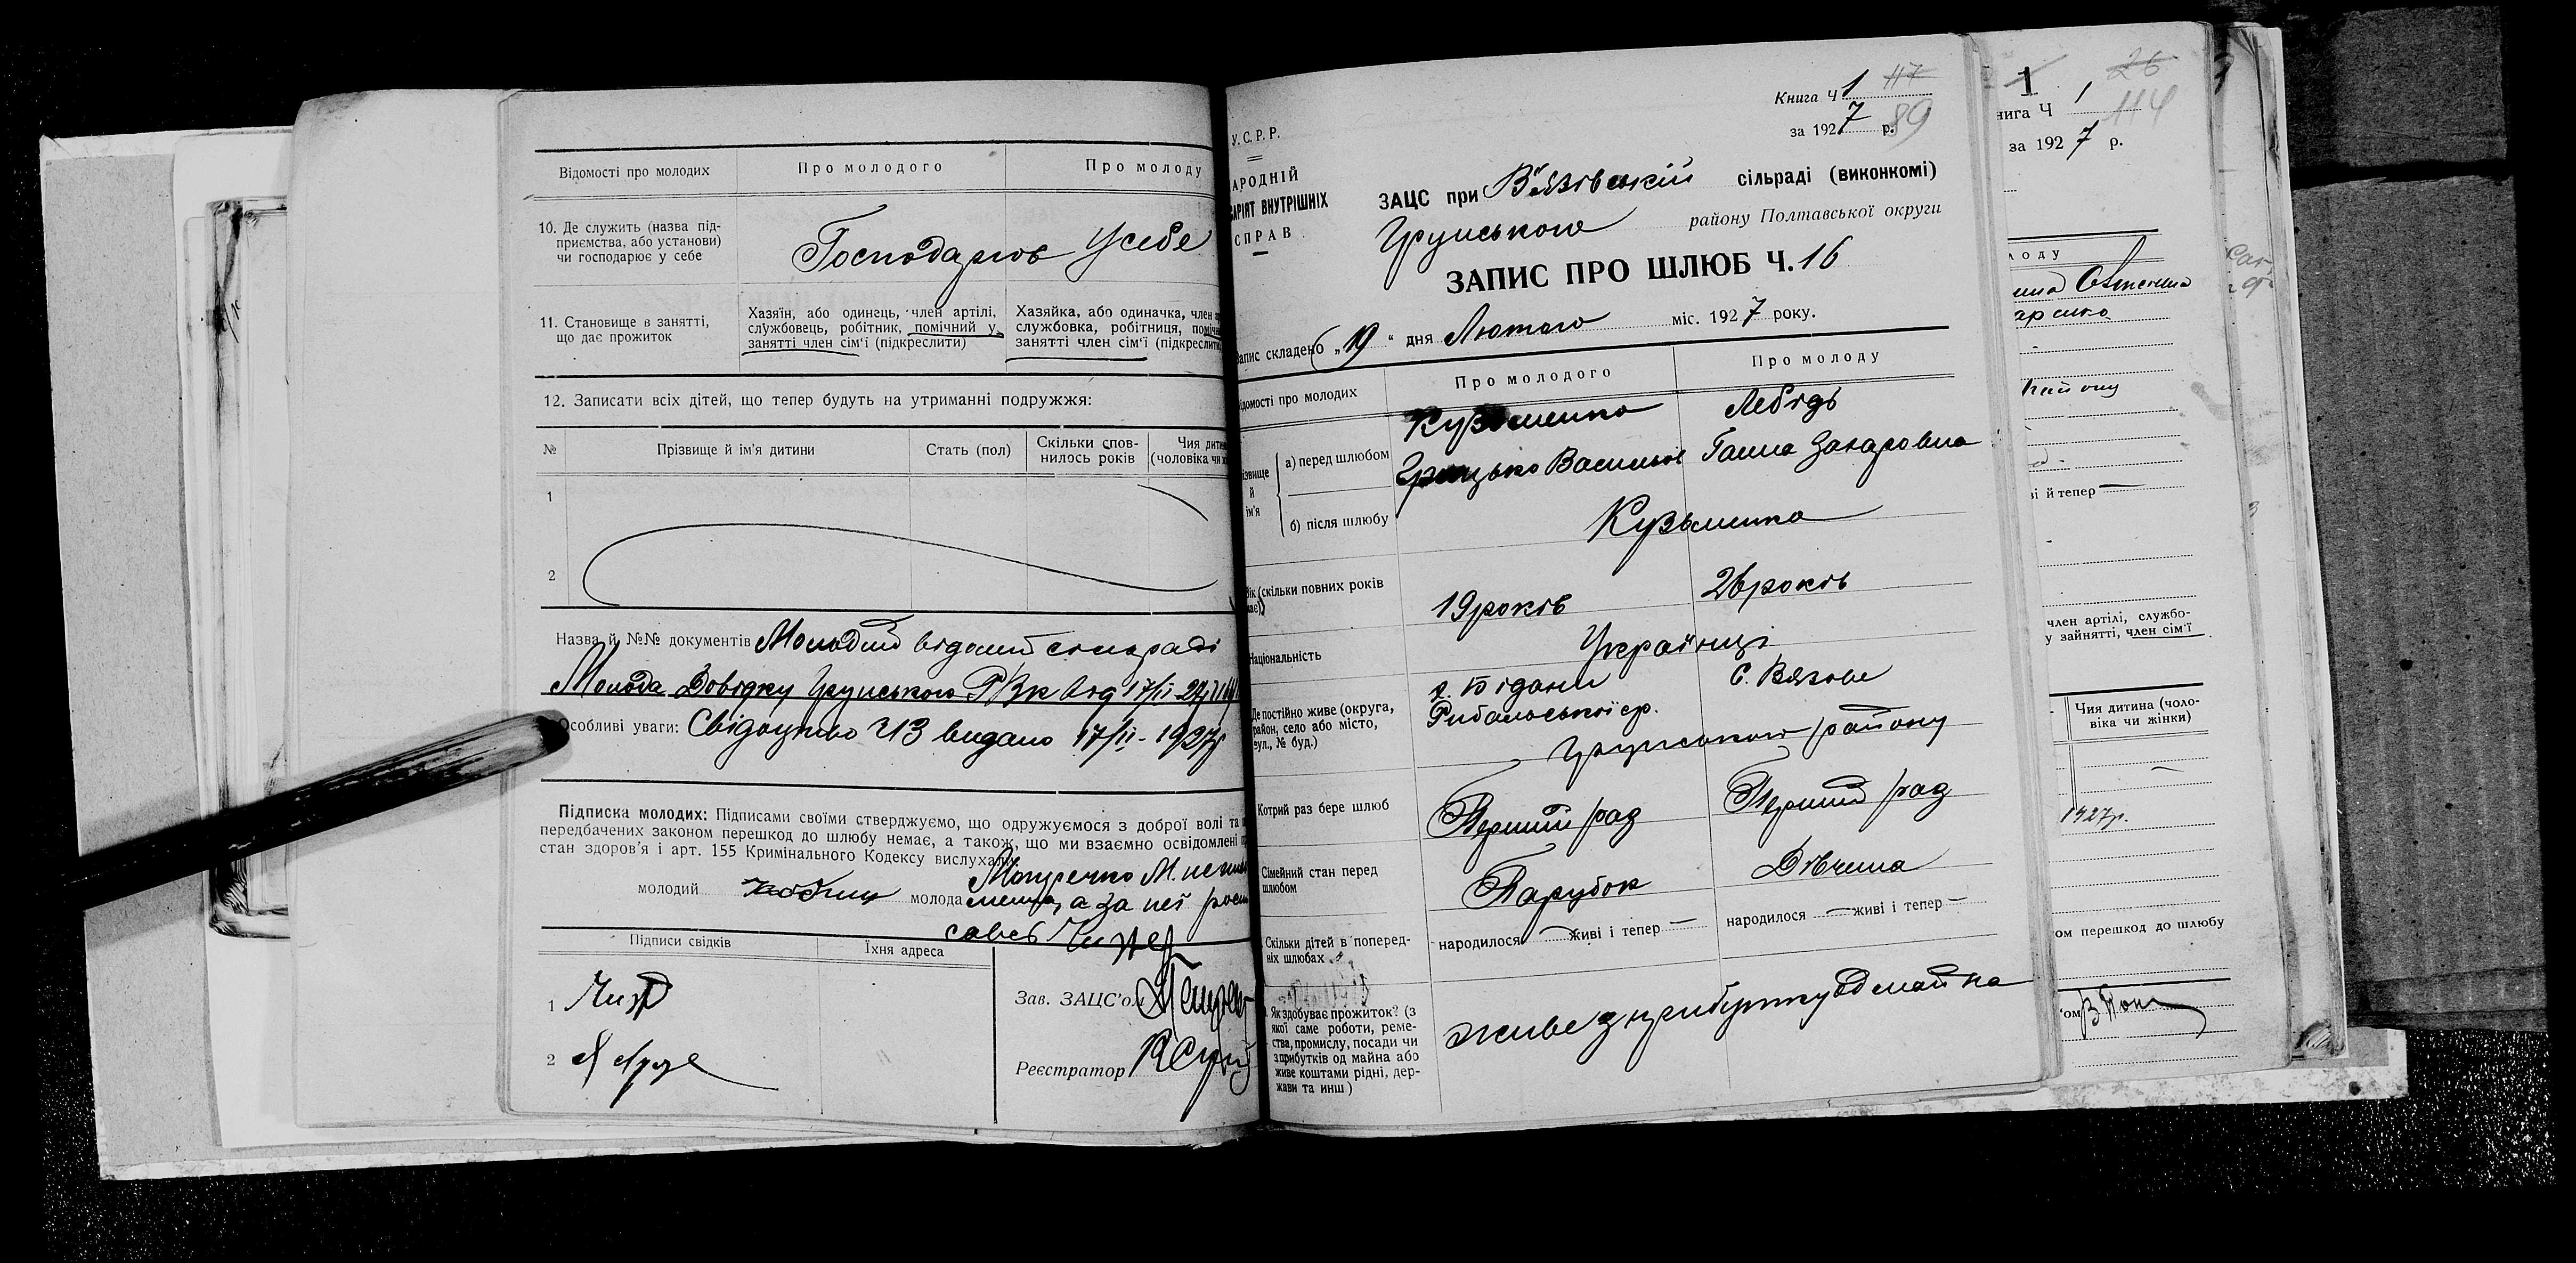 Відомості про молодих
Про молодого
Про молоду
10. Де служить (назва під-
приємства, або установи)
чи господарює у себе
Господарюв у себе
11. Становище в занятті,
що дає прожиток
Хазяїн, або одинець, член артілі,
службовець, робітник, помічний у
занятті член сім'ї (підкреслити)
Хазяйка, або одиначка, член
службовка, робітниця, поміч
занятті член сім'ї (підкреслити
12. Записати всіх дітей, що тепер будуть на утриманні подружжя:
№
Прізвище й ім'я дитини
Стать (пол)
Скільки спов-
нилось років
Чия дити
(чоловіка чи
1
2
Назва й №№ документів Молодий відомий сельраді
Молода Довідку Грунського РВК від 17/II-27р
Особливі уваги: Свідоцтво Ч3 видано 17/II-1927р
Підписка молодих: Підписами своїми стверджуємо, що одружуємося з доброї волі та
передбачених законом перешкод до шлюбу немає, а також, що ми взаємно освідомлені
стан здоров'я і арт. 155 Кримінального Кодексу вислухали.
молодий
молода
а за неї
Підписи свідків
Їхня адреса
1
2
Зав. ЗАЦС'ом
Реєстратор
У. С. Р. Р.
АРОДНІЙ
АРІЯТ ВНУТРІШНІХ
СПРАВ
Книга Ч 1 117
за 1927 р. 89
ЗАЦС при В'язівській сільраді (виконкомі)
Грунського району Полтавської округи
ЗАПИС ПРО ШЛЮБ Ч. 16
Запис складено „19“ дня Лютого міс. 1927 року.
ідомості про молодих
Про молодого
Про молоду
ізвище
й
ім'я
а) перед шлюбом
Кузьменко
Грицько Васильов
Лебідь
Ганна Захаровна
б) після шлюбу
Кузьменко
Вік (скільки повних років
має)
19 років
26 років
Національність
Українці
Де постійно живе (округа,
район, село або місто,
вул., № буд.)
х. Бідани
Рибальської ср.
С. Вязове
Грунського району
Котрий раз бере шлюб
Перший раз
Перший раз
Сімейний стан перед
шлюбом
Парубок
Дівчина
Скільки дітей в поперед-
ніх шлюбах
народилося — живі і тепер —
народилося — живі і тепер —
Як здобуває прожиток? (з
якої саме роботи, реме-
ства, промислу, посади чи
з прибутків од майна або
живе коштами рідні, дер-
жави та инш)
живе з прибутку од майна
1
26
нига Ч 1 114
за 1927 р.
лоду
району
ві й тепер —
член артілі, службо-
у зайнятті, член сім'ї
Чия дитина (чоло-
віка чи жінки)
1927р.
ом перешкод до шлюбу
'ом